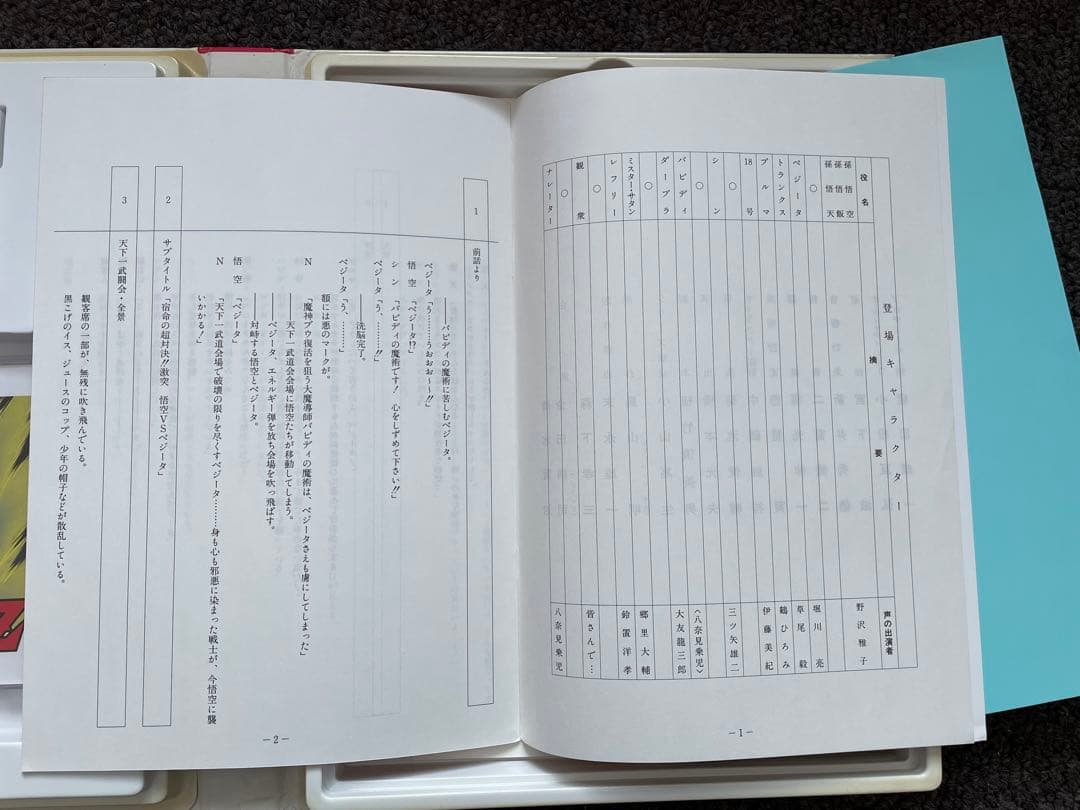 登場キャラクター
役名
摘要
声の出演者
孫悟空
孫悟飯
孫悟天
野沢雅子
○
ベジータ
堀川亮
トランクス
草尾毅
ブルマ
鶴ひろみ
18号
伊藤美紀
○
シン
三ツ矢雄二
○
バビディ
〈八奈見乗児〉
ダーブラ
大友龍三郎
○
ミスター・サタン
郷里大輔
レフリー
鈴置洋孝
○
観衆
皆さんで…
○
ナレーター
八奈見乗児
―1―
1 前話より
――バビディの魔術に苦しむベジータ。
ベジータ「う………うおおお〜〜!!」
悟空「ベジータ!?」
シン「バビディの魔術です! 心をしずめて下さい!!」
ベジータ「う、………!!」
――洗脳完了。
ベジータ「う、………」
額には悪のマークが。
N「魔神ブウ復活を狙う大魔導師バビディの魔術は、ベジータさえも虜にしてしまった」
――天下一武道会会場に悟空たちが移動してしまう。
――ベジータ、エネルギー弾を放ち会場を吹っ飛ばす。
――対峙する悟空とベジータ。
悟空「ベジータ」
N「天下一武道会場で破壊の限りを尽くすベジータ………身も心も邪悪に染まった戦士が、今悟空に襲
いかかる!」
2 サブタイトル「宿命の超対決!!激突 悟空VSベジータ」
3 天下一武闘会・全景
観客席の一部が、無残に吹き飛んでいる。
黒こげのイス、ジュースのコップ、少年の帽子などが散乱している。
―2―